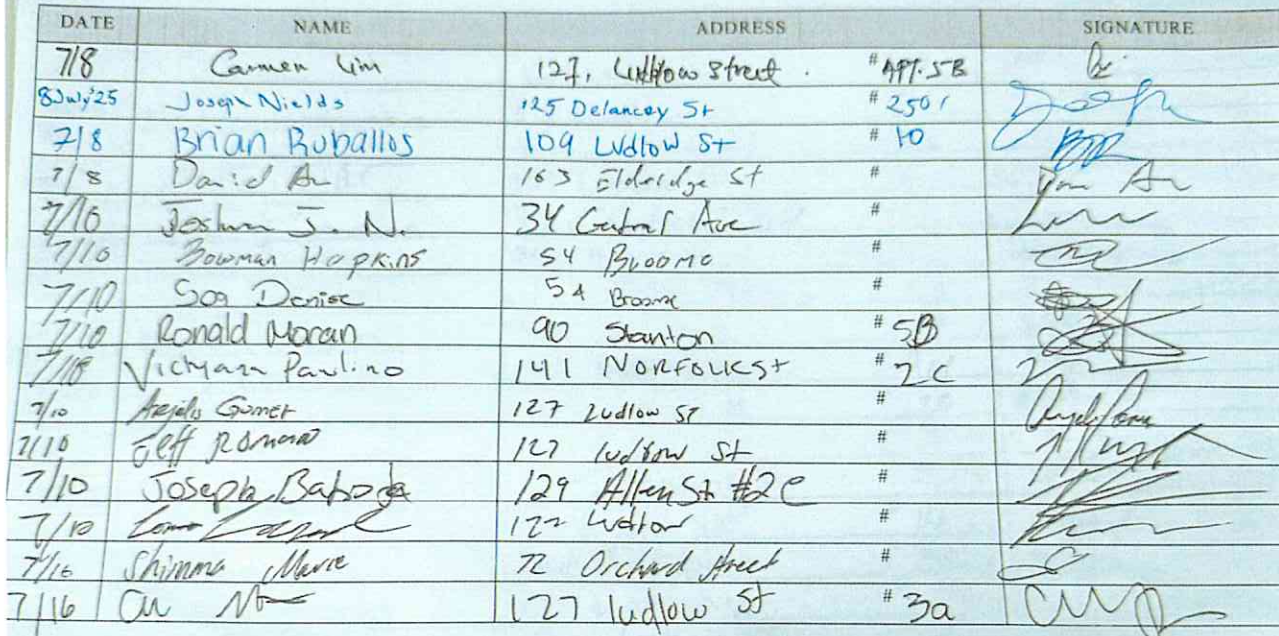 DATE NAME ADDRESS SIGNATURE
7/8 Carmen Lim 127, Ludlow Street. # APT. 5B
8 July '25 Joseph Nields 125 Delancey St # 2501
7/8 Brian Ruballos 109 Ludlow St # 10
7/8 Daniel Au 163 Eldridge St #
7/10 Joshua J. N. 34 Central Ave #
7/10 Bowman Hopkins 54 Broome #
7/10 Denise 54 Broome #
7/10 Ronald Moran 90 Stanton # 5B
7/10 Paulino 141 NORFOLK St # 2C
7/10 Gomez 127 Ludlow ST #
7/10 Jeff Romano 127 Ludlow St #
7/10 Joseph 129 Allen St #2C #
7/10 Ludlow #
7/16 Shimma Marie 72 Orchard Street #
7/16 127 ludlow St # 3a